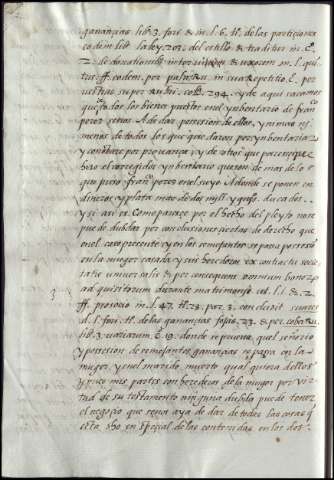 ganancias lib. 3. fori & in l. 6. tt. de las particiones
eodem lib. la ley. 203. del estillo & traditur in c.
2. de donationib. inter uirum & uxorem in l. qui
tus. ff. eodem. per in sua Repetitio. c. per
uestras super Rubri. colb. 294. y de aqui sacamos
que todos los bienes puestos en el ynbentario de fran.co
perez seran A de dar posesion de ellos, y ni mas ni
menos de todos los que quedaron por ynbentariar
y constare por provanças y de otros que parecen que se
hizo el corregidor ynbentario quer on de mas de lo s
que puso fran.co perez en el suyo. A donde se ponen en
dineros y plata mas de dos myll y quis.os ducados
y si asi es Como parece por el hecho del pleyto no se
puede dubdar por conclusiones ciertas de derecho que
en el caso presente y en los semejantes se pasa posesion
en la muger casada y sus herederos ex contractu socie
tatis universalis & per consequens omnium bonorum
ad quisitorum durante matrimonio tex. l. 1. & .2.
3 ff. pro socio in l. 47. tt. 28. p. 3. concludit suares
a l. fori. tt. de las ganancias folio. 73. & per cobarru.
lib. 3. variarum. c. 19. donde se prueva, quel señorio
y posesion de semejantes ganancias se pasa en la
muger, y en el marido muerto qual quiera dellos
y pues mis partes son herederos de la muger por vir
tud de su testamento ninguna dubda puede tener
el negocio que se aya de dar de todas las cosas
dho en special de las contenidas en los dos